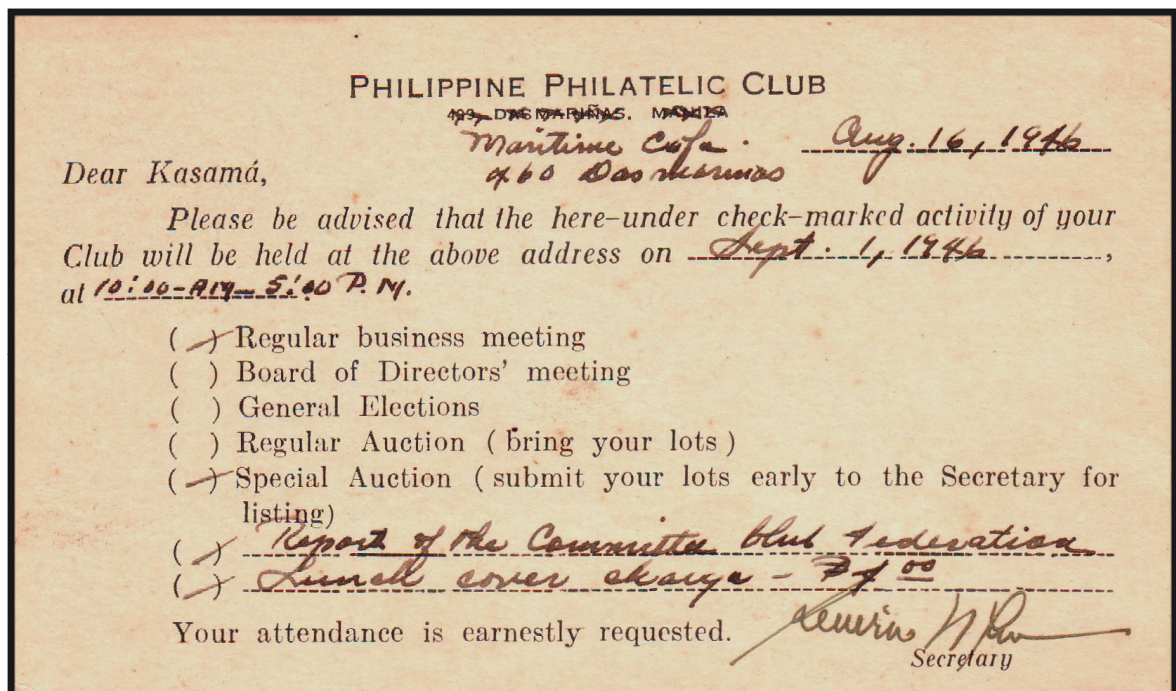 PHILIPPINE PHILATELIC CLUB
DASMARIÑAS, MANILA
Maritime Cafe. Aug. 16, 1946
Dear Kasamá, 460 Dasmarinas
Please be advised that the here-under check-marked activity of your
Club will be held at the above address on Sept. 1, 1946,
at 10:00-AM-5:00 P.M.
( ) Regular business meeting
( ) Board of Directors' meeting
( ) General Elections
( ) Regular Auction ( bring your lots )
( ) Special Auction ( submit your lots early to the Secretary for
listing)
( ) Report of the Committee Club Federation
( ) Lunch cover charge -
Your attendance is earnestly requested.
Secretary